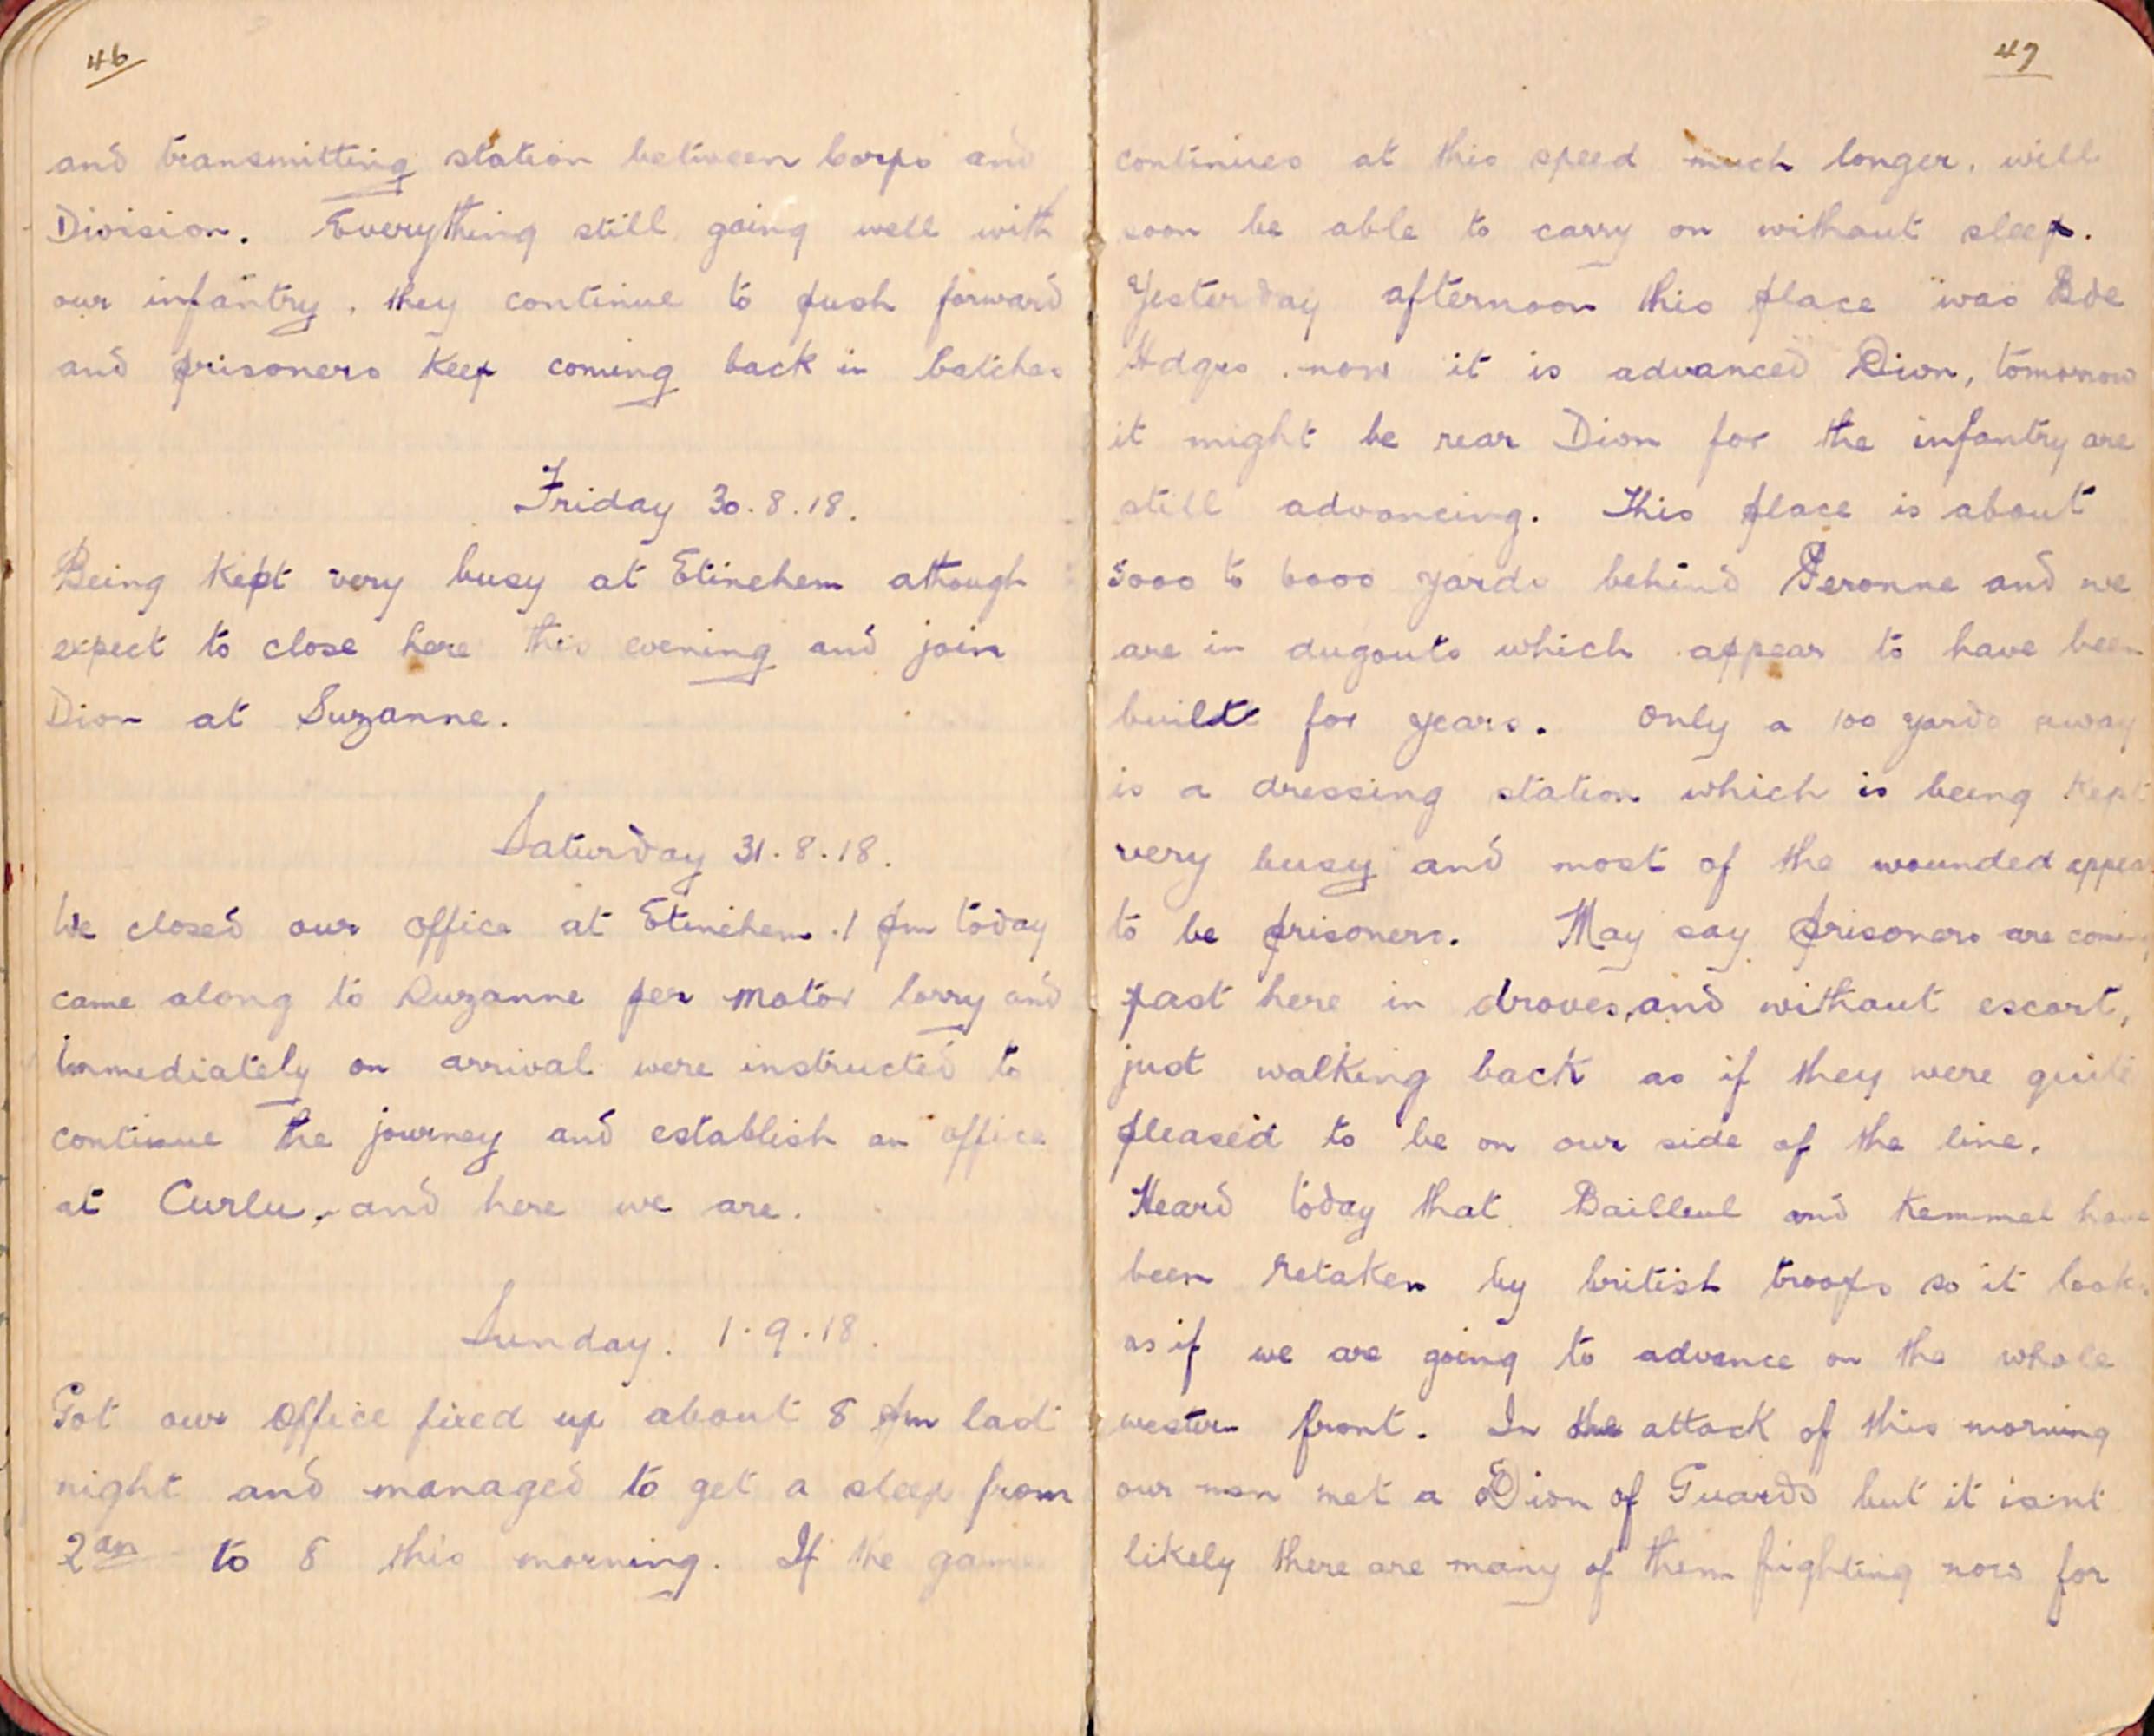 46
and transmitting station between Corps and
Division. Everything still going well with
our infantry, they continue to push forward
and prisoners keep coming back in batches
Friday 30.8.18.
Being kept very busy at Etinehem athough
expect to close here this evening and join
Dion at Suzanne.
Saturday 31.8.18.
We closed our office at Etinehem 1 pm today
came along to Suzanne per motor lorry and
immediately on arrival were instructed to
continue the journey and establish an office
at Curlu, and here we are.
Sunday. 1.9.18.
Got our office fixed up about 8 pm last
night and managed to get a sleep from
2 am to 8 this morning. If the game
47
continues at this speed much longer, will
soon be able to carry on without sleep.
Yesterday afternoon this place was Bde
Hdqrs. now it is advanced Dion, tomorrow
it might be rear Dion for the infantry are
still advancing. This place is about
5000 to 6000 yards behind Peronne and we
are in dugouts which appear to have been
built for years. Only a 100 yards away
is a dressing station which is being kept
very busy and most of the wounded appear
to be prisoners. May say prisoners are coming
past here in droves, and without escort,
just walking back as if they were quite
pleased to be on our side of the line.
Heard today that Bailleul and Kemmel have
been retaken by british troops so it looks
as if we are going to advance on the whole
western front. In the attack of this morning
our men met a Dion of Guards but it isnt
likely there are many of them fighting now for